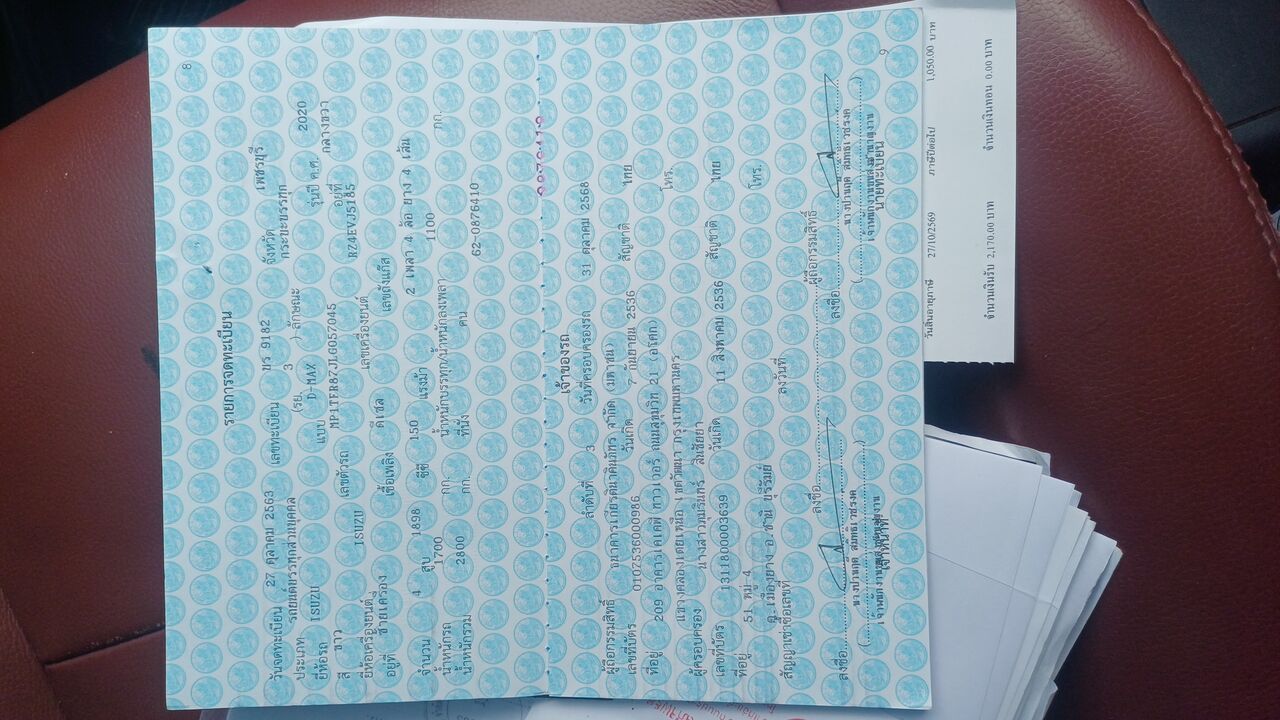 8
รายการจดทะเบียน
วันจดทะเบียน 27 ตุลาคม 2563 เลขทะเบียน ขร 9182 จังหวัด เพชรบุรี
ประเภท รถยนต์บรรทุกส่วนบุคคล (รย. 3 ) ลักษณะ กระบะบรรทุก
ยี่ห้อรถ ISUZU แบบ D-MAX รุ่นปี ค.ศ. 2020
สี ขาว เลขตัวรถ MP1TFR87JLG057045 อยู่ที่ กลางขวา
ยี่ห้อเครื่องยนต์ ISUZU เลขเครื่องยนต์ RZ4EVJ5185
อยู่ที่ ซ้ายเครื่อง เชื้อเพลิง ดีเซล เลขถังแก๊ส
จำนวน 4 สูบ 1898 ซีซี 150 แรงม้า 2 เพลา 4 ล้อ ยาง 4 เส้น
น้ำหนักรถ 1700 กก. น้ำหนักบรรทุก/น้ำหนักลงเพลา 1100 กก.
น้ำหนักรวม 2800 กก. ที่นั่ง คน
62-0876410
เจ้าของรถ
ลำดับที่ 3 วันที่ครอบครองรถ 31 ตุลาคม 2568
ผู้ถือกรรมสิทธิ์ ธนาคารเกียรตินาคินภัทร จำกัด (มหาชน)
เลขที่บัตร 0107536000986 วันเกิด 7 กันยายน 2536 สัญชาติ ไทย
ที่อยู่ 209 อาคารเคเคพี ทาวเวอร์ ถนนสุขุมวิท 21 (อโศก) โทร.
แขวงคลองเตยเหนือ เขตวัฒนา กรุงเทพมหานคร
ผู้ครอบครอง นางสาวภมรินทร์ สินชัยยา
เลขที่บัตร 1311800003639 วันเกิด 11 สิงหาคม 2536 สัญชาติ ไทย
ที่อยู่ 51 หมู่ 4 โทร.
ต.เมืองยาง อ.ชำนิ บุรีรัมย์
สัญญาเช่าซื้อเลขที่ ลงวันที่
ลงชื่อ ผู้ถือกรรมสิทธิ์
ลงชื่อ ลงชื่อ
เจ้าหน้าที่ นายทะเบียน
9
วันสิ้นอายุภาษี 27/10/2569 ภาษีปีต่อไป 1,050.00 บาท
จำนวนเงินรับ 2,170.00 บาท จำนวนเงินทอน 0.00 บาท